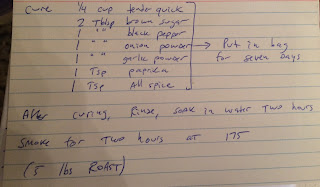 Cure 1/4 cup tender quick
2 Tblsp brown sugar
1 " " black pepper
1 " " onion powder → Put in bag
1 " " garlic powder for seven days
1 Tsp paprika
1 Tsp All spice
After curing, Rinse, soak in water two hours
Smoke for two hours at 175
(5 lbs ROAST)